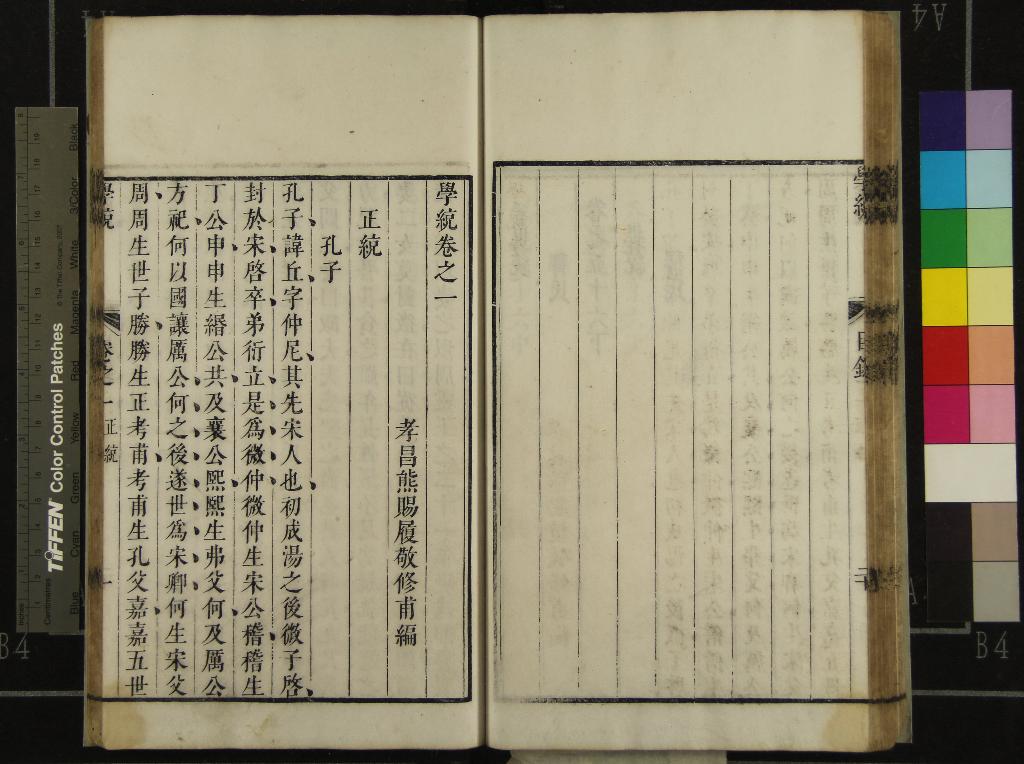 學統卷之一
孝昌熊賜履敬修甫編
正統
孔子
孔子諱丘字仲尼其先宋人也初成湯之後微子啓
封於宋啓卒弟衍立是爲微仲微仲生宋公稽稽生
丁公申申生緡公共及襄公熙熙生弗父何及厲公
方祀何以國讓厲公何之後遂世爲宋卿何生宋父
周周生世子勝勝生正考甫考甫生孔父嘉嘉五世
學統
卷之一 正統
一
學統
目錄
A4
B4
B4
TIFFEN Color Control Patches
© The Tiffen Company, 2007
Blue
Cyan
Green
Yellow
Red
Magenta
White
3/Color
Black
Inches
Centimetres